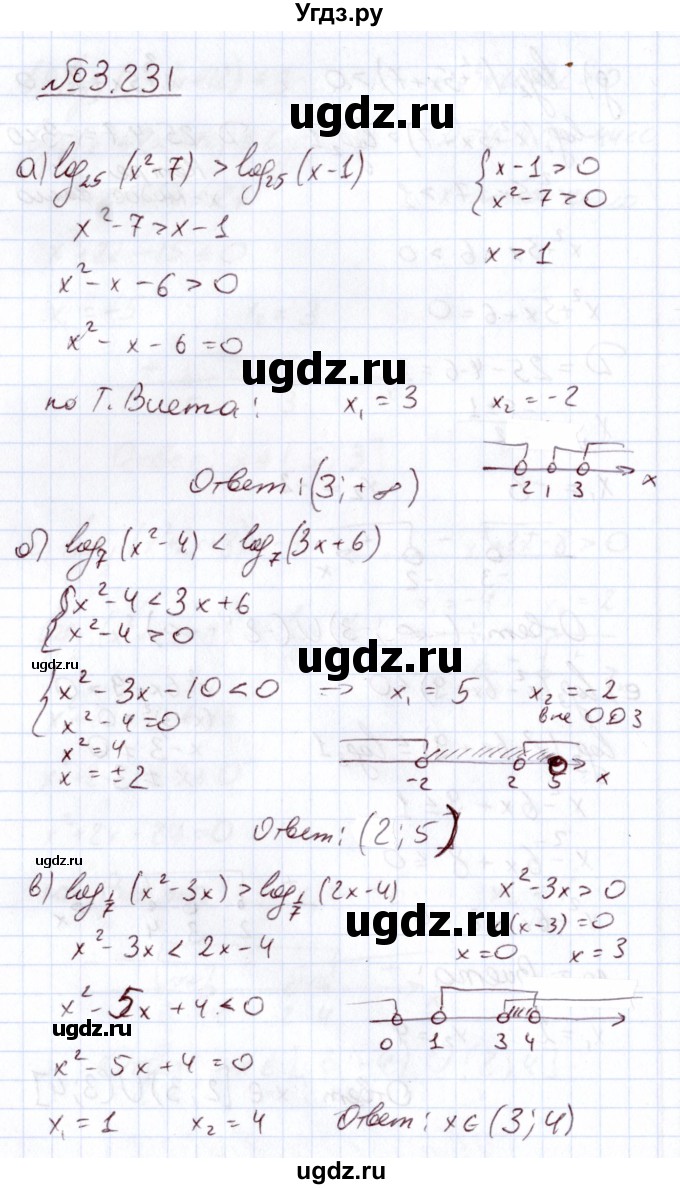 Угдз.ру
№3.231
ugdz.ru
а) log₂₅ (x²-7) > log₂₅ (x-1)
{ x-1 > 0
x²-7 > 0
x²-7 > x-1
x > 1
x² - x - 6 > 0
x² - x - 6 = 0
ugdz.ru
по Т. Виета: x₁ = 3 x₂ = -2
-2 1 3 x
Ответ: (3; +∞)
б) log₇ (x²-4) < log₇ (3x+6)
ugdz.ru
{ x²-4 < 3x+6
x²-4 > 0
ugdz.ru
{ x² - 3x - 10 < 0 ⇒ x₁ = 5 x₂ = -2
x² - 4 = 0 вне ОДЗ
x² = 4
x = ±2
-2 2 5 x
ugdz.ru
Ответ: (2; 5)
ugdz.ru
в) log₁/₇ (x²-3x) > log₁/₇ (2x-4) x²-3x > 0
x² - 3x < 2x - 4
(x-3) = 0
ugdz.ru
x = 0 x = 3
x² - 5x + 4 < 0
ugdz.ru
0 1 3 4
x² - 5x + 4 = 0
x₁ = 1 x₂ = 4 Ответ: x ∈ (3; 4)
ugdz.ru
ugdz.ru